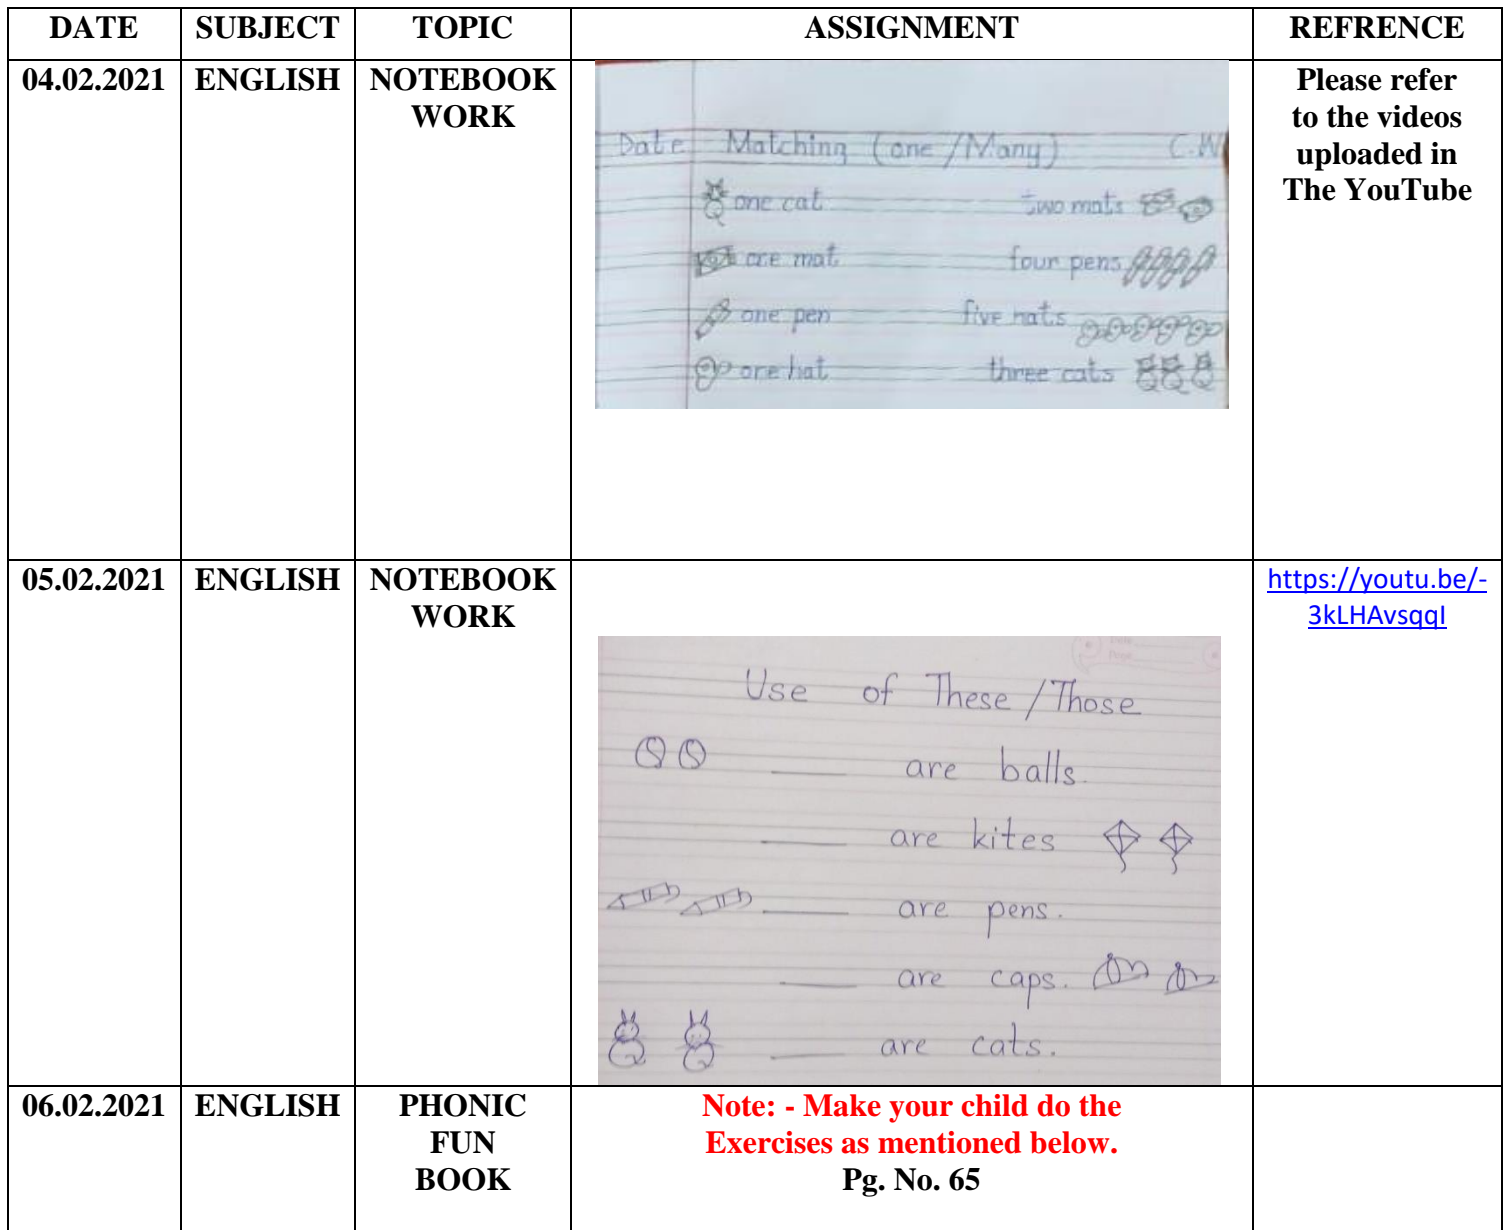 DATE SUBJECT TOPIC ASSIGNMENT REFRENCE
04.02.2021 ENGLISH NOTEBOOK
WORK
Date Matching (one / Many) C.W
one cat two mats
one mat four pens
one pen five hats
one hat three cats
Please refer
to the videos
uploaded in
The YouTube
05.02.2021 ENGLISH NOTEBOOK
WORK
Use of These / Those
___ are balls.
___ are kites
___ are pens.
___ are caps.
___ are cats.
https://youtu.be/-
3kLHAvsqqI
06.02.2021 ENGLISH PHONIC
FUN
BOOK
Note: - Make your child do the
Exercises as mentioned below.
Pg. No. 65